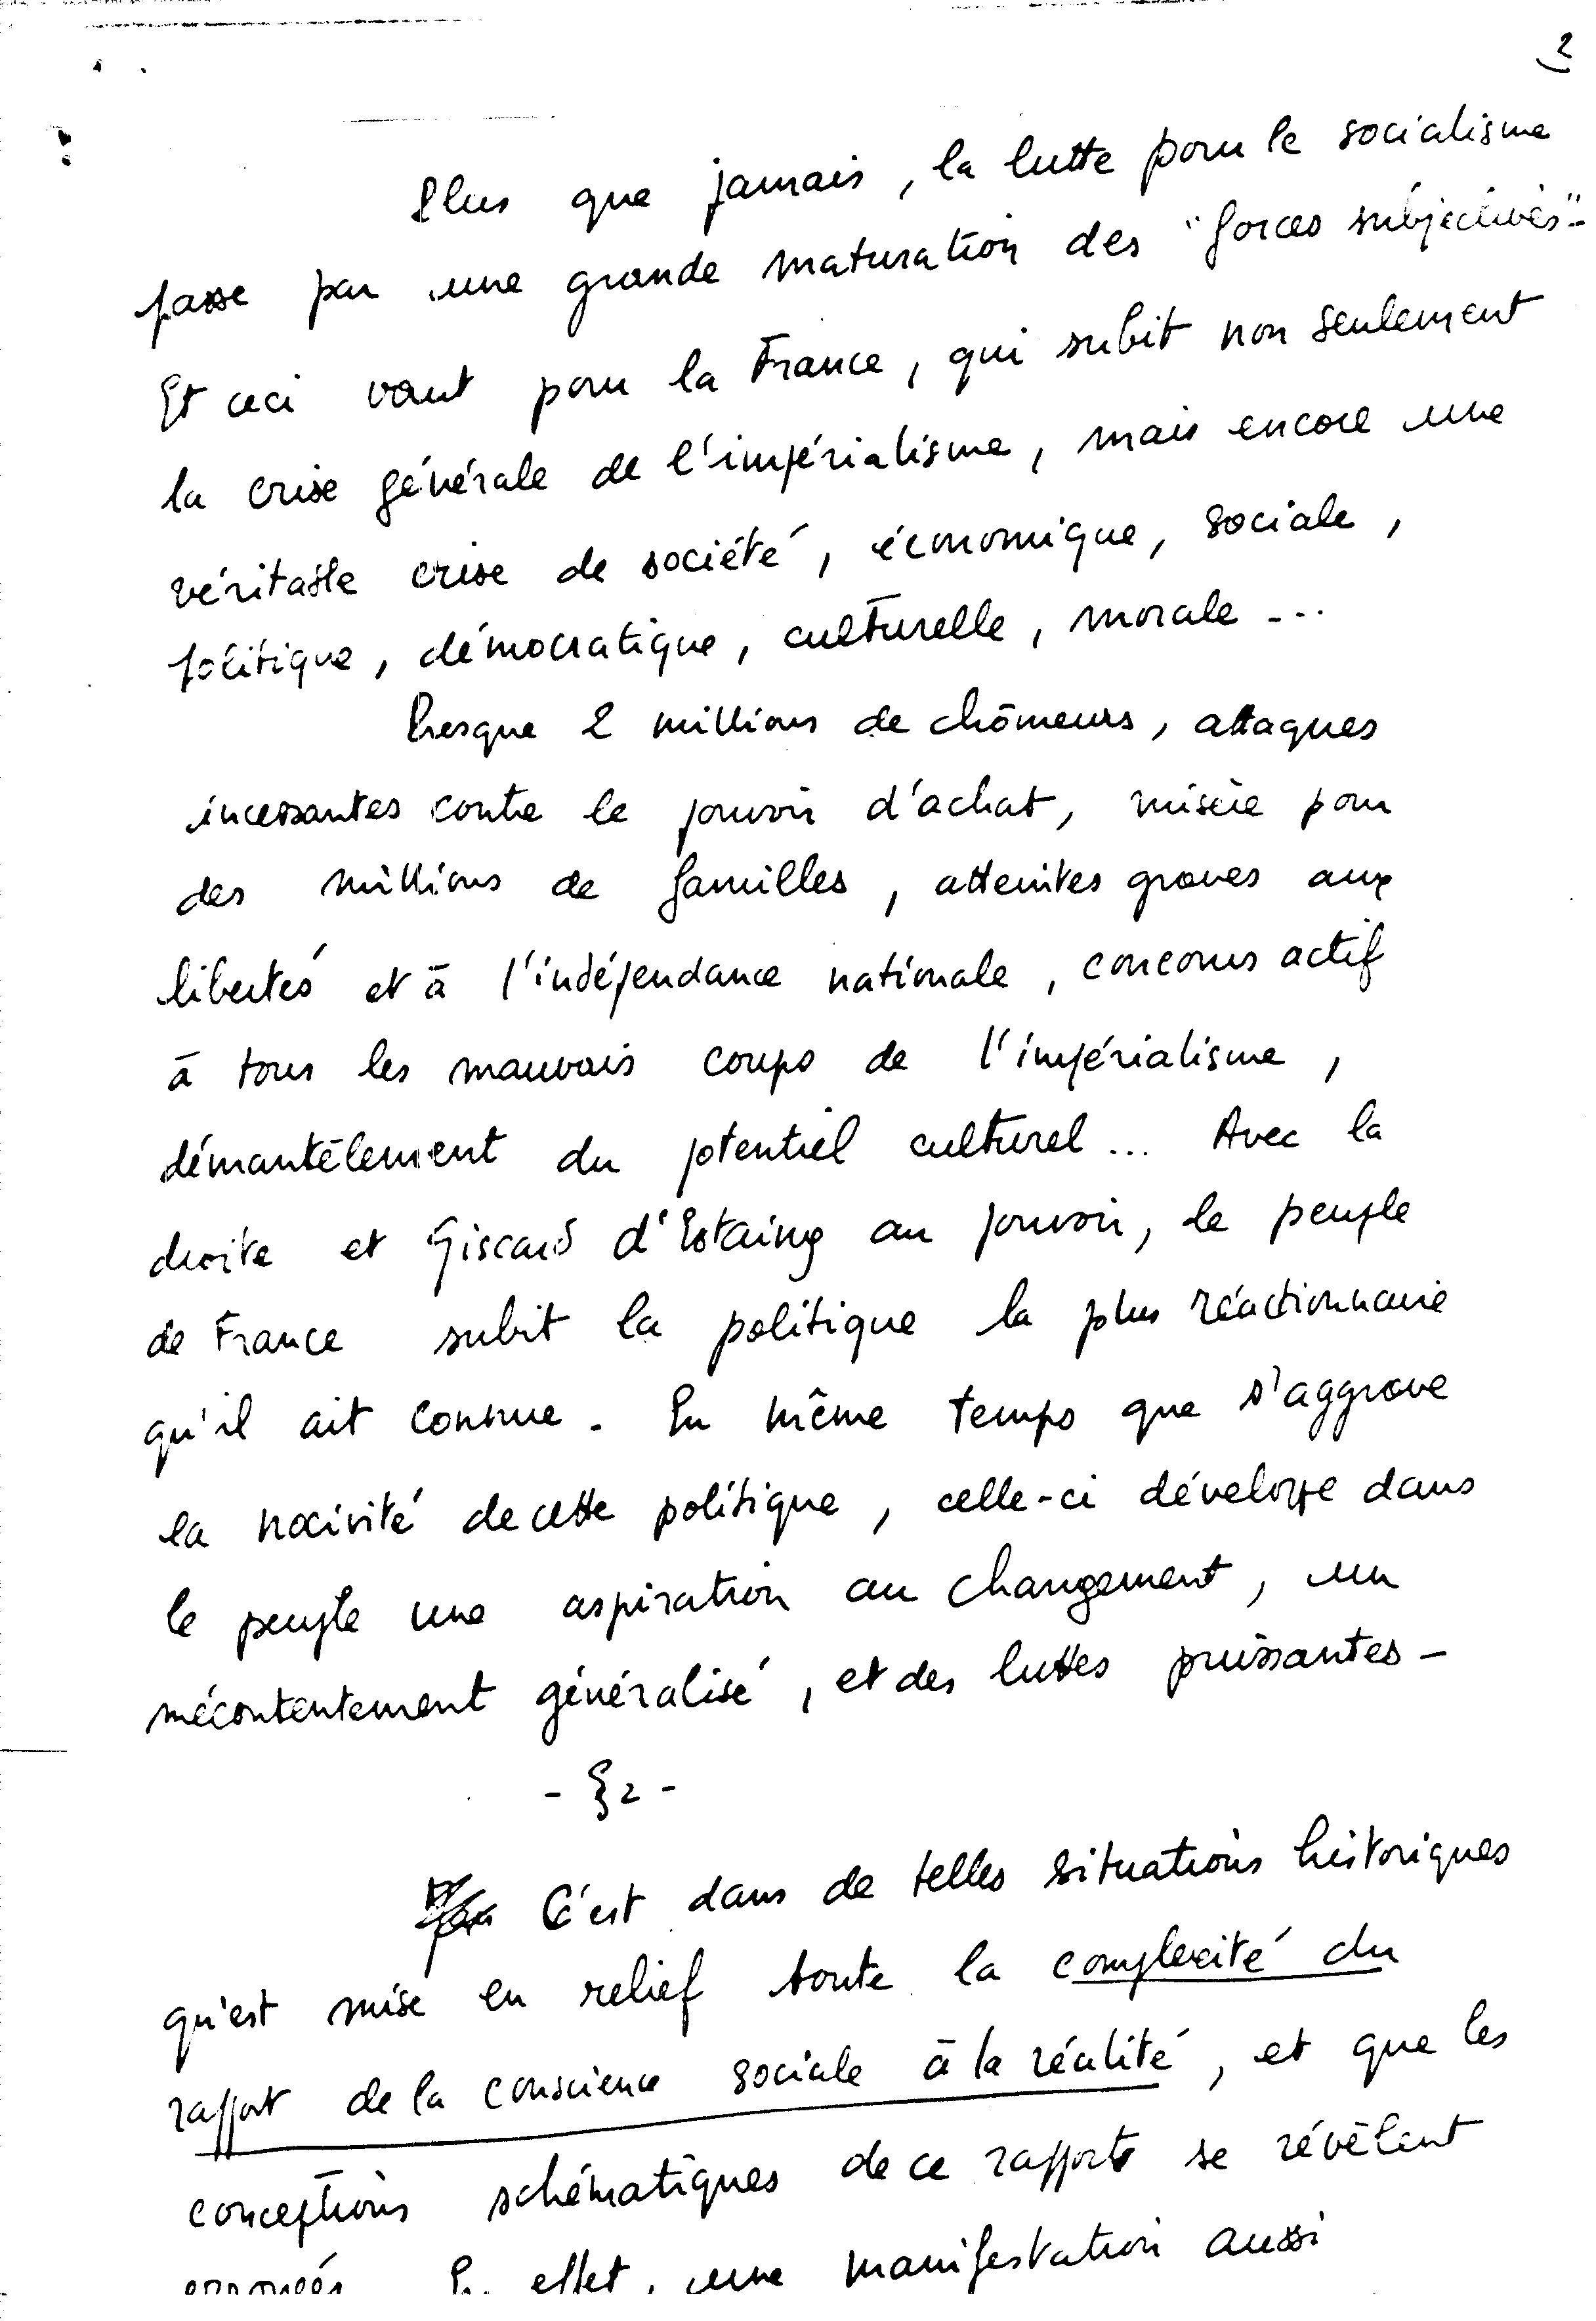 2
Plus que jamais, la lutte pour le socialisme
passe par une grande maturation des "forces subjectives" -
Et ceci vaut pour la France, qui subit non seulement
la crise générale de l'impérialisme, mais encore une
véritable crise de société, économique, sociale,
politique, démocratique, culturelle, morale ...
Presque 2 millions de chômeurs, attaques
incessantes contre le pouvoir d'achat, misère pour
des millions de familles, atteintes graves aux
libertés et à l'indépendance nationale, concours actif
à tous les mauvais coups de l'impérialisme,
démantèlement du potentiel culturel ... Avec la
droite et Giscard d'Estaing au pouvoir, le peuple
de France subit la politique la plus réactionnaire
qu'il ait connue. En même temps que s'aggrave
la nocivité de cette politique, celle-ci développe dans
le peuple une aspiration au changement, un
mécontentement généralisé, et des luttes puissantes -
- § 2 -
C'est dans de telles situations historiques
qu'est mise en relief toute la complexité du
rapport de la conscience sociale à la réalité, et que les
conceptions schématiques de ce rapport se révèlent
En effet, une manifestation aussi